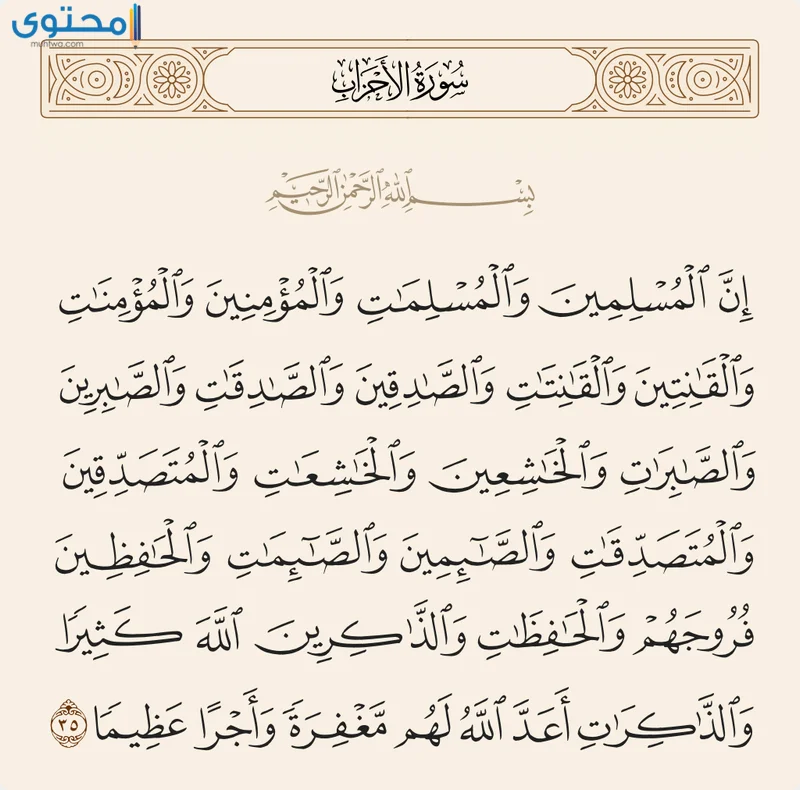 محتوى
muhtwa.com
سُورَةُ الأَحْزَابِ
بِسْمِ ٱللَّهِ ٱلرَّحْمَٰنِ ٱلرَّحِيمِ
إِنَّ ٱلْمُسْلِمِينَ وَٱلْمُسْلِمَٰتِ وَٱلْمُؤْمِنِينَ وَٱلْمُؤْمِنَٰتِ
وَٱلْقَٰنِتِينَ وَٱلْقَٰنِتَٰتِ وَٱلصَّٰدِقِينَ وَٱلصَّٰدِقَٰتِ وَٱلصَّٰبِرِينَ
وَٱلصَّٰبِرَٰتِ وَٱلْخَٰشِعِينَ وَٱلْخَٰشِعَٰتِ وَٱلْمُتَصَدِّقِينَ
وَٱلْمُتَصَدِّقَٰتِ وَٱلصَّٰٓئِمِينَ وَٱلصَّٰٓئِمَٰتِ وَٱلْحَٰفِظِينَ
فُرُوجَهُمْ وَٱلْحَٰفِظَٰتِ وَٱلذَّٰكِرِينَ ٱللَّهَ كَثِيرًا
وَٱلذَّٰكِرَٰتِ أَعَدَّ ٱللَّهُ لَهُم مَّغْفِرَةً وَأَجْرًا عَظِيمًا ٣٥